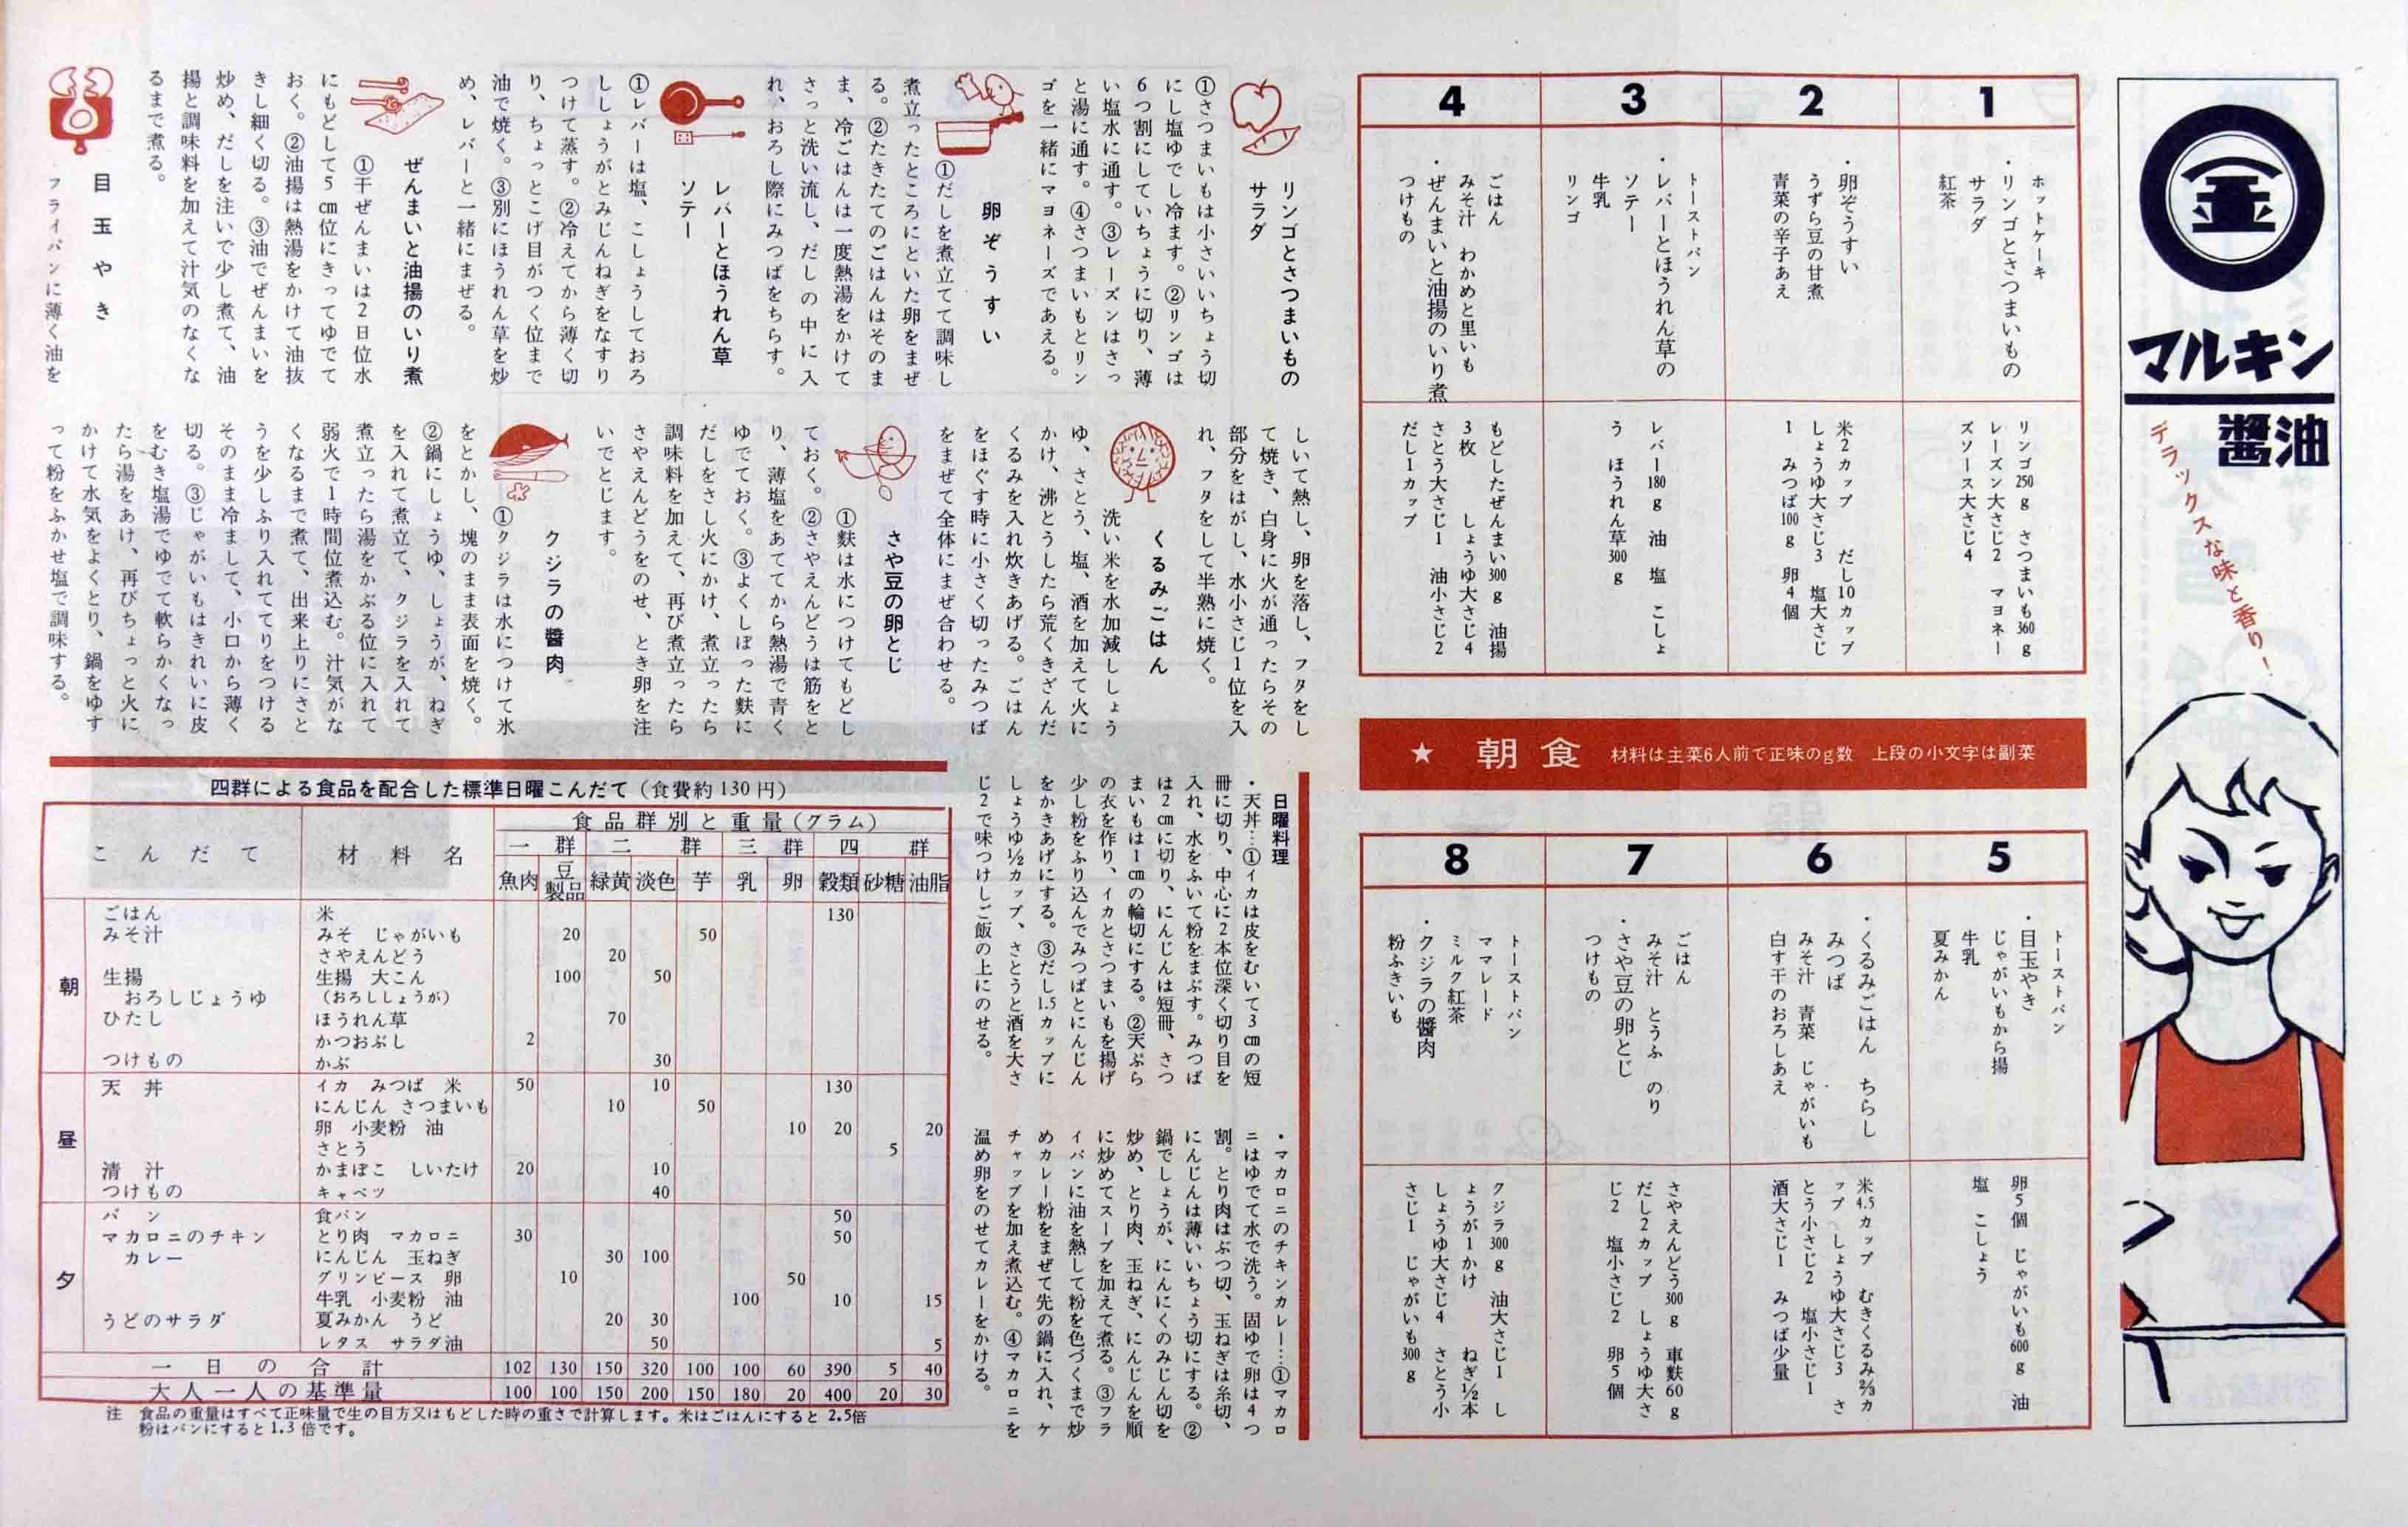 金
マルキン
醬油
デラックスな味と香り！
1
ホットケーキ
・リンゴとさつまいもの
サラダ
紅茶
リンゴ250g さつまいも360g
レーズン大さじ2 マヨネー
ズソース大さじ4
2
・卵ぞうすい
うずら豆の甘煮
青菜の辛子あえ
米2カップ だし10カップ
しょうゆ大さじ3 塩大さじ
1 みつば100g 卵4個
3
トーストパン
・レバーとほうれん草の
ソテー
牛乳
リンゴ
レバー180g 油 塩 こしょ
う ほうれん草300g
4
ごはん
みそ汁 わかめと里いも
・ぜんまいと油揚のいり煮
つけもの
もどしたぜんまい300g 油揚
3枚 しょうゆ大さじ4
さとう大さじ1 油小さじ2
だし1カップ
★ 朝食 材料は主菜6人前で正味のg数 上段の小文字は副菜
5
トーストパン
・目玉やき
じゃがいもから揚
牛乳
夏みかん
卵5個 じゃがいも600g 油
塩 こしょう
6
・くるみごはん ちらし
みつば
みそ汁 青菜 じゃがいも
白す干のおろしあえ
米4.5カップ むきくるみ2/3カ
ップ しょうゆ大さじ3 さ
とう小さじ2 塩小さじ1
酒大さじ1 みつば少量
7
ごはん
みそ汁 とうふ のり
・さや豆の卵とじ
つけもの
さやえんどう300g 車麩60g
だし2カップ しょうゆ大さ
じ2 塩小さじ2 卵5個
8
トーストパン
ママレード
ミルク紅茶
・クジラの醬肉
粉ふきいも
クジラ300g 油大さじ1 し
ょうが1かけ ねぎ1/2本
しょうゆ大さじ4 さとう小
さじ1 じゃがいも300g
リンゴとさつまいもの
サラダ
①さつまいもは小さいいちょう切
にし塩ゆでし冷ます。②リンゴは
6つ割にしていちょうに切り、薄
い塩水に通す。③レーズンはさっ
と湯に通す。④さつまいもとリン
ゴを一緒にマヨネーズであえる。
卵ぞうすい
①だしを煮立てて調味し
煮立ったところにといた卵をまぜ
る。②たきたてのごはんはそのま
ま、冷ごはんは一度熱湯をかけて
さっと洗い流し、だしの中に入
れ、おろし際にみつばをちらす。
レバーとほうれん草
ソテー
①レバーは塩、こしょうしておろ
ししょうがとみじんねぎをなすり
つけて蒸す。②冷えてから薄く切
り、ちょっとこげ目がつく位まで
油で焼く。③別にほうれん草を炒
め、レバーと一緒にまぜる。
ぜんまいと油揚のいり煮
①干ぜんまいは2日位水
にもどして5cm位にきってゆでて
おく。②油揚は熱湯をかけて油抜
きし細く切る。③油でぜんまいを
炒め、だしを注いで少し煮て、油
揚と調味料を加えて汁気のなくな
るまで煮る。
目玉やき
フライパンに薄く油を
しいて熱し、卵を落し、フタをし
て焼き、白身に火が通ったらその
部分をはがし、水小さじ1位を入
れ、フタをして半熟に焼く。
くるみごはん
洗い米を水加減ししょう
ゆ、さとう、塩、酒を加えて火に
かけ、沸とうしたら荒くきざんだ
くるみを入れ炊きあげる。ごはん
をほぐす時に小さく切ったみつば
をまぜて全体にまぜ合わせる。
さや豆の卵とじ
①麩は水につけてもどし
ておく。②さやえんどうは筋をと
り、薄塩をあててから熱湯で青く
ゆでておく。③よくしぼった麩に
だしをさし火にかけ、煮立ったら
調味料を加えて、再び煮立ったら
さやえんどうをのせ、とき卵を注
いでとじます。
クジラの醬肉
①クジラは水につけて氷
をとかし、塊のまま表面を焼く。
②鍋にしょうゆ、しょうが、ねぎ
を入れて煮立て、クジラを入れて
煮立ったら湯をかぶる位に入れて
弱火で1時間位煮込む。汁気がな
くなるまで煮て、出来上りにさと
うを少しふり入れててりをつける
そのまま冷まして、小口から薄く
切る。③じゃがいもはきれいに皮
をむき塩湯でゆでて軟らかくなっ
たら湯をあけ、再びちょっと火に
かけて水気をよくとり、鍋をゆす
って粉をふかせ塩で調味する。
日曜料理
・天丼…①イカは皮をむいて3cmの短
冊に切り、中心に2本位深く切り目を
入れ、水をふいて粉をまぶす。みつば
は2cmに切り、にんじんは短冊、さつ
まいもは1cmの輪切にする。②天ぷら
の衣を作り、イカとさつまいもを揚げ
少し粉をふり込んでみつばとにんじん
をかきあげにする。③だし1.5カップに
しょうゆ1/2カップ、さとうと酒を大さ
じ2で味つけしご飯の上にのせる。
・マカロニのチキンカレー…①マカロ
ニはゆでて水で洗う。固ゆで卵は4つ
割。とり肉はぶつ切、玉ねぎは糸切、
にんじんは薄いいちょう切にする。②
鍋でしょうが、にんにくのみじん切を
炒め、とり肉、玉ねぎ、にんじんを順
に炒めてスープを加えて煮る。③フラ
イパンに油を熱して粉を色づくまで炒
めカレー粉をまぜて先の鍋に入れ、ケ
チャップを加え煮込む。④マカロニを
温め卵をのせてカレーをかける。
四群による食品を配合した標準日曜こんだて（食費約130円）
こんだて 材料名 食品群別と重量（グラム）
一群 二群 三群 四群
魚肉 豆製品 緑黄 淡色 芋 乳 卵 穀類 砂糖 油脂
朝
ごはん 米 130
みそ汁 みそ じゃがいも 20 50
さやえんどう 20
生揚 生揚 大こん 100 50
おろしじょうゆ （おろししょうが）
ひたし ほうれん草 70
かつおぶし 2
つけもの かぶ 30
昼
天丼 イカ みつば 米 50 10 130
にんじん さつまいも 10 50
卵 小麦粉 油 10 20 20
さとう 5
清汁 かまぼこ しいたけ 20 10
つけもの キャベツ 40
夕
パン 食パン 50
マカロニのチキン とり肉 マカロニ 30 50
カレー にんじん 玉ねぎ 30 100
グリンピース 卵 10 50
牛乳 小麦粉 油 100 10 15
うどのサラダ 夏みかん うど 20 30
レタス サラダ油 50 5
一日の合計 102 130 150 320 100 100 60 390 5 40
大人一人の基準量 100 100 150 200 150 180 20 400 20 30
注 食品の重量はすべて正味量で生の目方又はもどした時の重さで計算します。米はごはんにすると2.5倍
粉はパンにすると1.3倍です。